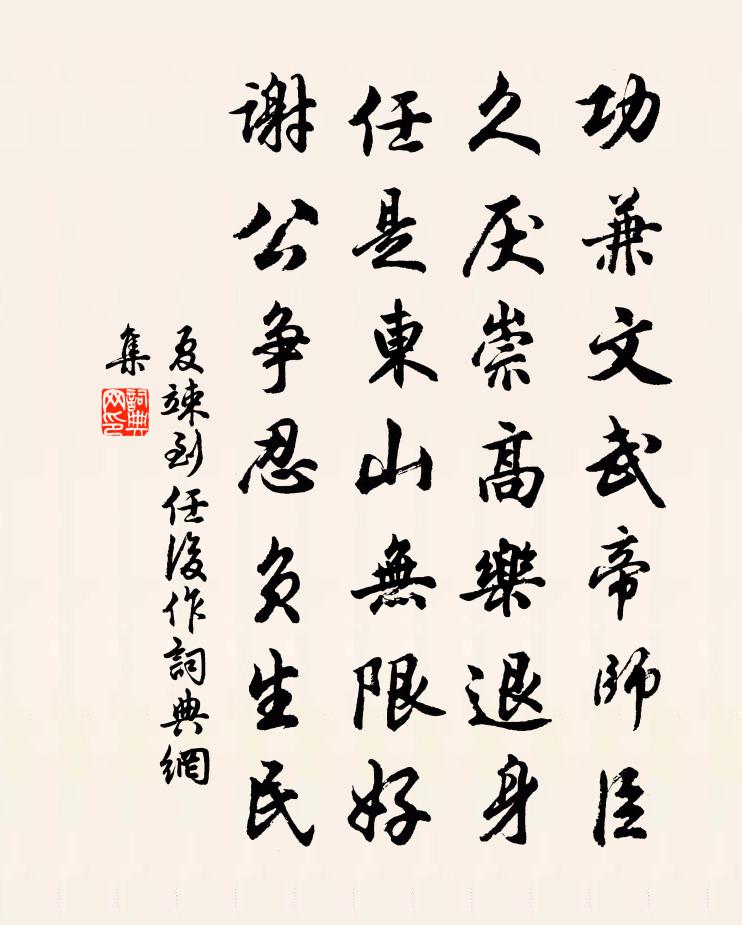 功兼文武帝師臣
久厌崇高樂退身
任是東山無限好
谢公争忍负生民
夏竦到任後作詞典網
集
詞典
网印